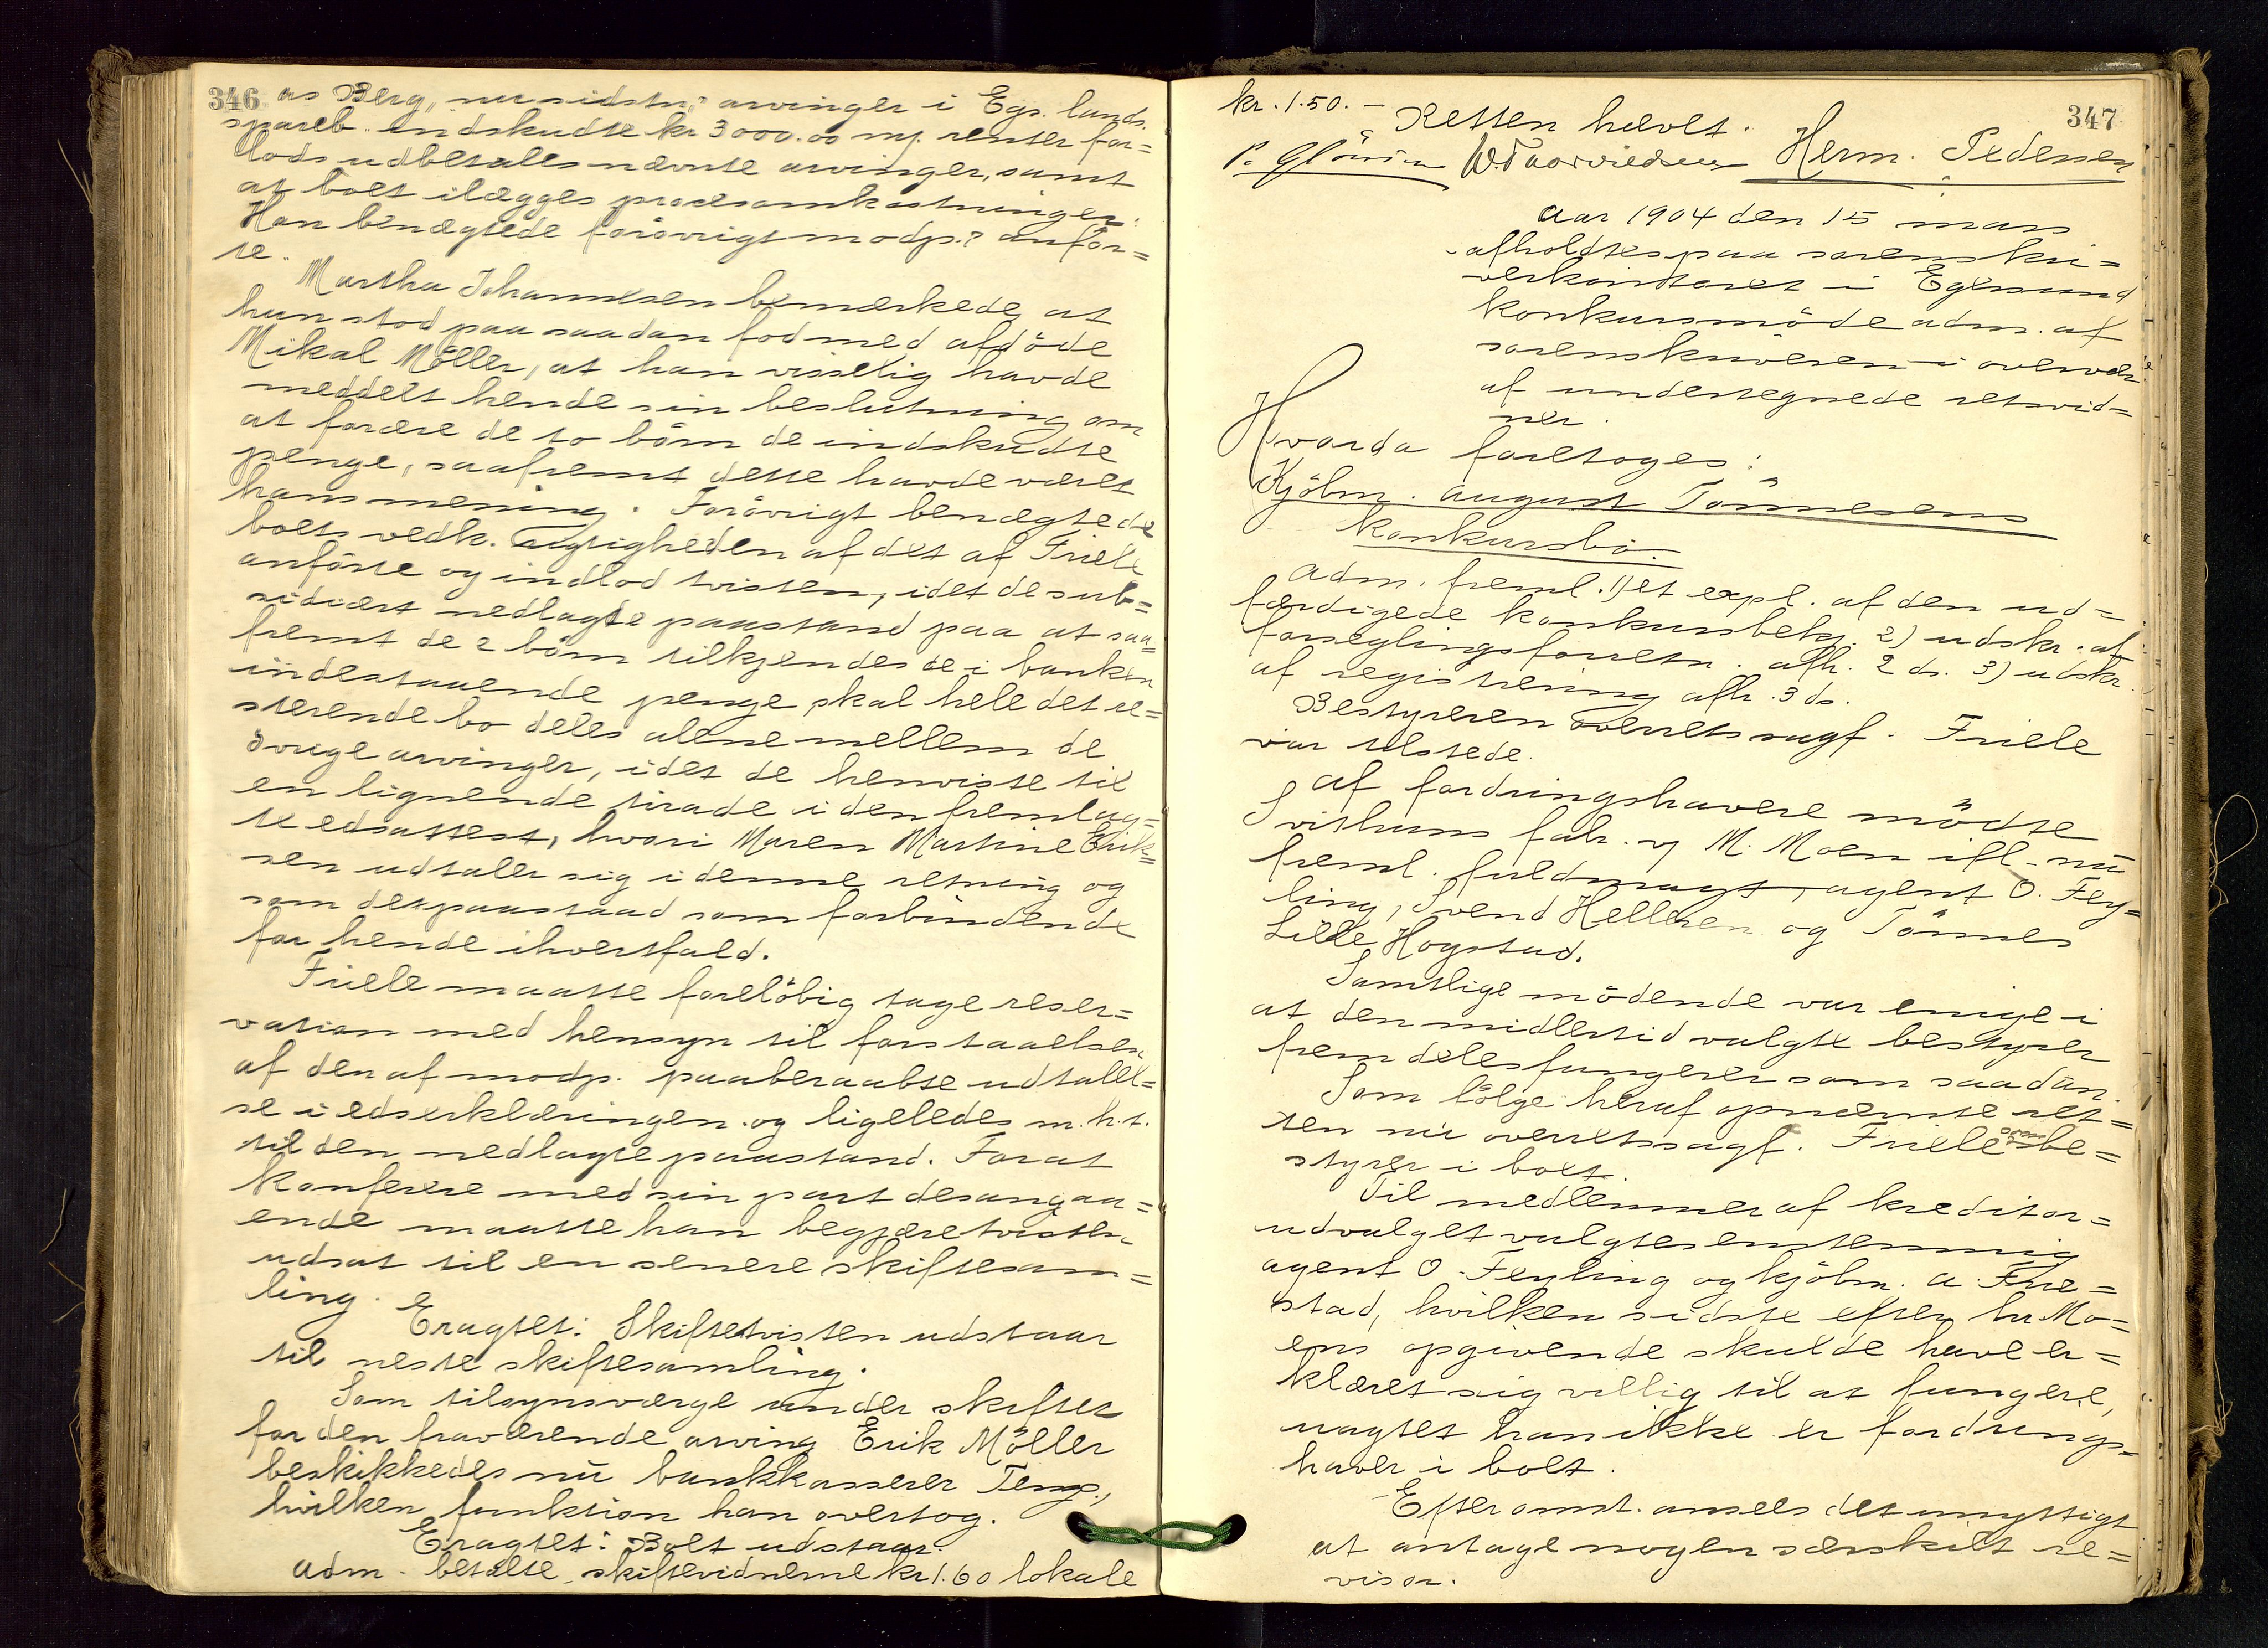 346
as Berg, nu sidstn.s arvinger i Egs. lands.
spareb. indskudte kr 3000.00 m/ renter for=
lods udbetales nævnte arvinger, samt
at boet ilægges procesomkostninger.
Han benægtede forøvrigt modp.s anför=
te.
Martha Johannesen bemærkede at
hun stod paa saadan fod med afdöde
Mikal Möller, at han visselig havde
meddelt hende sin beslutning om
at forære de to börn de indskudte
penge, saafremt dette havde været
hans mening. Forövrigt benægtede
boets vedk. rigtigheden af det af Friele
anförte og indlod tvisten, idet de sub=
sidiært nedlagde paastand paa at saa=
fremt de 2 börn tilkjendes de i banken
indestaaende penge skal hele det re=
sterende bo deles alene mellem de
övrige arvinger, idet de henviste til
en lignende tirade i den fremlag=
te edsattest, hvori Maren Martine Erik=
sen udtaler sig i denne retning og
som det paastaad som forbindende
for hende ihvertfald.
Friele maatte forelöbig tage reser=
vation med hensyn til forstaaelsen
af den af modp. paaberaabte udtalel=
se i edserklæringen og ligeledes m.h.t.
til den nedlagte paastand. For at
konferere med sin part desangaa=
ende maatte han begjære tvisten
udsat til en senere skiftesam=
ling.
Eragtet: Skiftetvisten udstaar
til neste skiftesamling.
Som tilsynsværge under skiftet
for den fraværende arving Erik Möller
beskikkedes nu bankkasserer Teng.,
hvilken funktion han overtog.
Eragtet: Boet udstaar.
Adm. betalte skiftevidnerne kr 1.60 lokale
347
kr. 1.50. -
Retten hævet.
P. W. Herm. Pedersen
Aar 1904 den 15 mars
afholdtes paa sorenskri=
verkontoret i Egersund
konkursmöde adm. af
sorenskriveren i overvær
af undertegnede retsvid=
ner.
Hvorda foretoges:
Kjöbm. August Tönnesens
konkursbo.
Adm. freml. 1) et expl. af den ud=
færdigede konkursbekj. 2) udskr. af
forseglingsforretn. afh. 2 ds. 3) udskr.
af registrering afh. 3 ds.
Bestyreren overretssagf. Friele
var tilstede.
Af fordringshavere mödte
Svithuns fabr. v/ M. Moen ifl. nu
freml. fuldmagt, agent O. Fey=
ling, Svend Helleren og Tönnes
Lille Hogstad.
Samtlige mödende var enige i
at den midlertid valgte bestyrer
fremdeles fungerer som saadan.
Som fölge heraf opnævnte ret=
ten nu overretssagf. Friele som be=
styrer i boet.
Til medlemmer af kreditor=
udvalget valgtes enstemmig
agent O. Feyling og kjöbm. A. Fue=
stad, hvilken sidste efter hr. Mo=
ens opgivende skulde have er=
klæret sig villig til at fungere,
uagtet han ikke er fordrings=
haver i boet.
Efter omst. ansees det unyttigt
at antage nogen særskilt re=
visor.